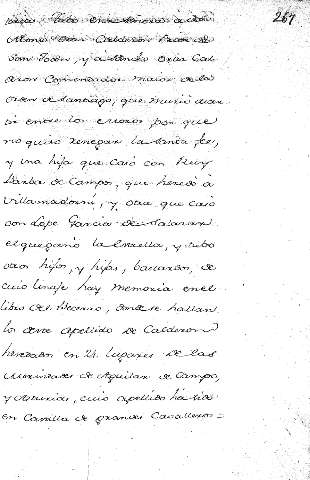 267
Alonso Diaz Calderon
San Juan, y a Sancho Ortiz Cal
deron Comendador maior de la
orden de Santiago, que murio mar
tir entre los moros por que
no quiso renegar la santa fee,
y una hija que casó con Ruy
Barba de Campos, que heredó á
Villamadorní, y otra que casó
con Lope Garcia de Salazar
el que ganó la Cerrilla, y tubo
otros hijos, y hijas, bastardos, de
cuio linaje hay memoria en el
libro del Becerro, donde se hallan
los deste apellido de Calderon
heredados en 24 lugares de las
Merindades de Aguilar de Campo,
y Asturias, cuio apellido ha sido
en Castilla de grandes Cavalleros =